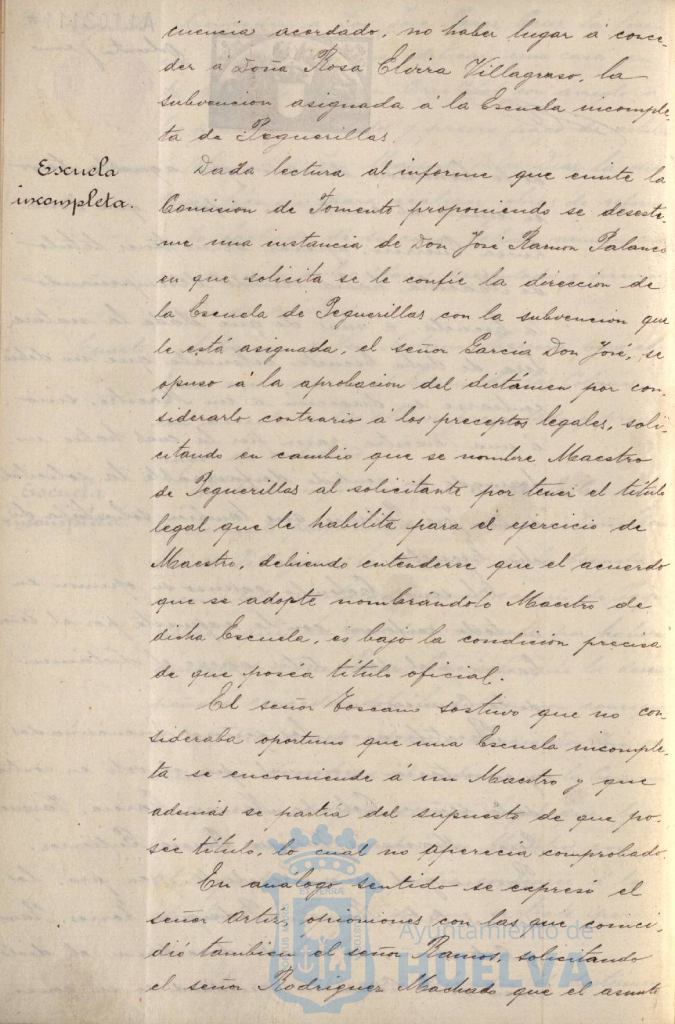 cuencia acordado, no haber lugar á conce-
der á Doña Rosa Elvira Villagraso, la
subvencion asignada á la Escuela incomple-
ta de Peguerillas.
Escuela
incompleta.
Dada lectura al informe que emite la
Comision de Fomento proponiendo se desesti-
me una instancia de Don José Ramon Palanco
en que solicita se le confie la direccion de
la Escuela de Peguerillas con la subvencion que
le está asignada, el señor Garcia Don José, se
opuso á la aprobacion del dictámen por con-
siderarlo contrario á los preceptos legales, soli-
citando en cambio que se nombre Maestro
de Peguerillas al solicitante por tener el título
legal que le habilita para el ejercicio de
Maestro, debiendo entenderse que el acuerdo
que se adopte nombrándolo Maestro de
dicha Escuela, es bajo la condición precisa
de que poséa título oficial.
El señor Toscano sostuvo que no con-
sideraba oportuno que una Escuela incomple-
ta se encomiende á un Maestro y que
además se partía del supuesto de que po-
sée título, lo cual no aparecia comprobado.
En análogo sentido se expresó el
señor Ortiz, opiniones con las que coinci-
dió tambien el señor Ramos, solicitando
el señor Rodriguez Machado que el asunto
Ayuntamiento de
HUELVA